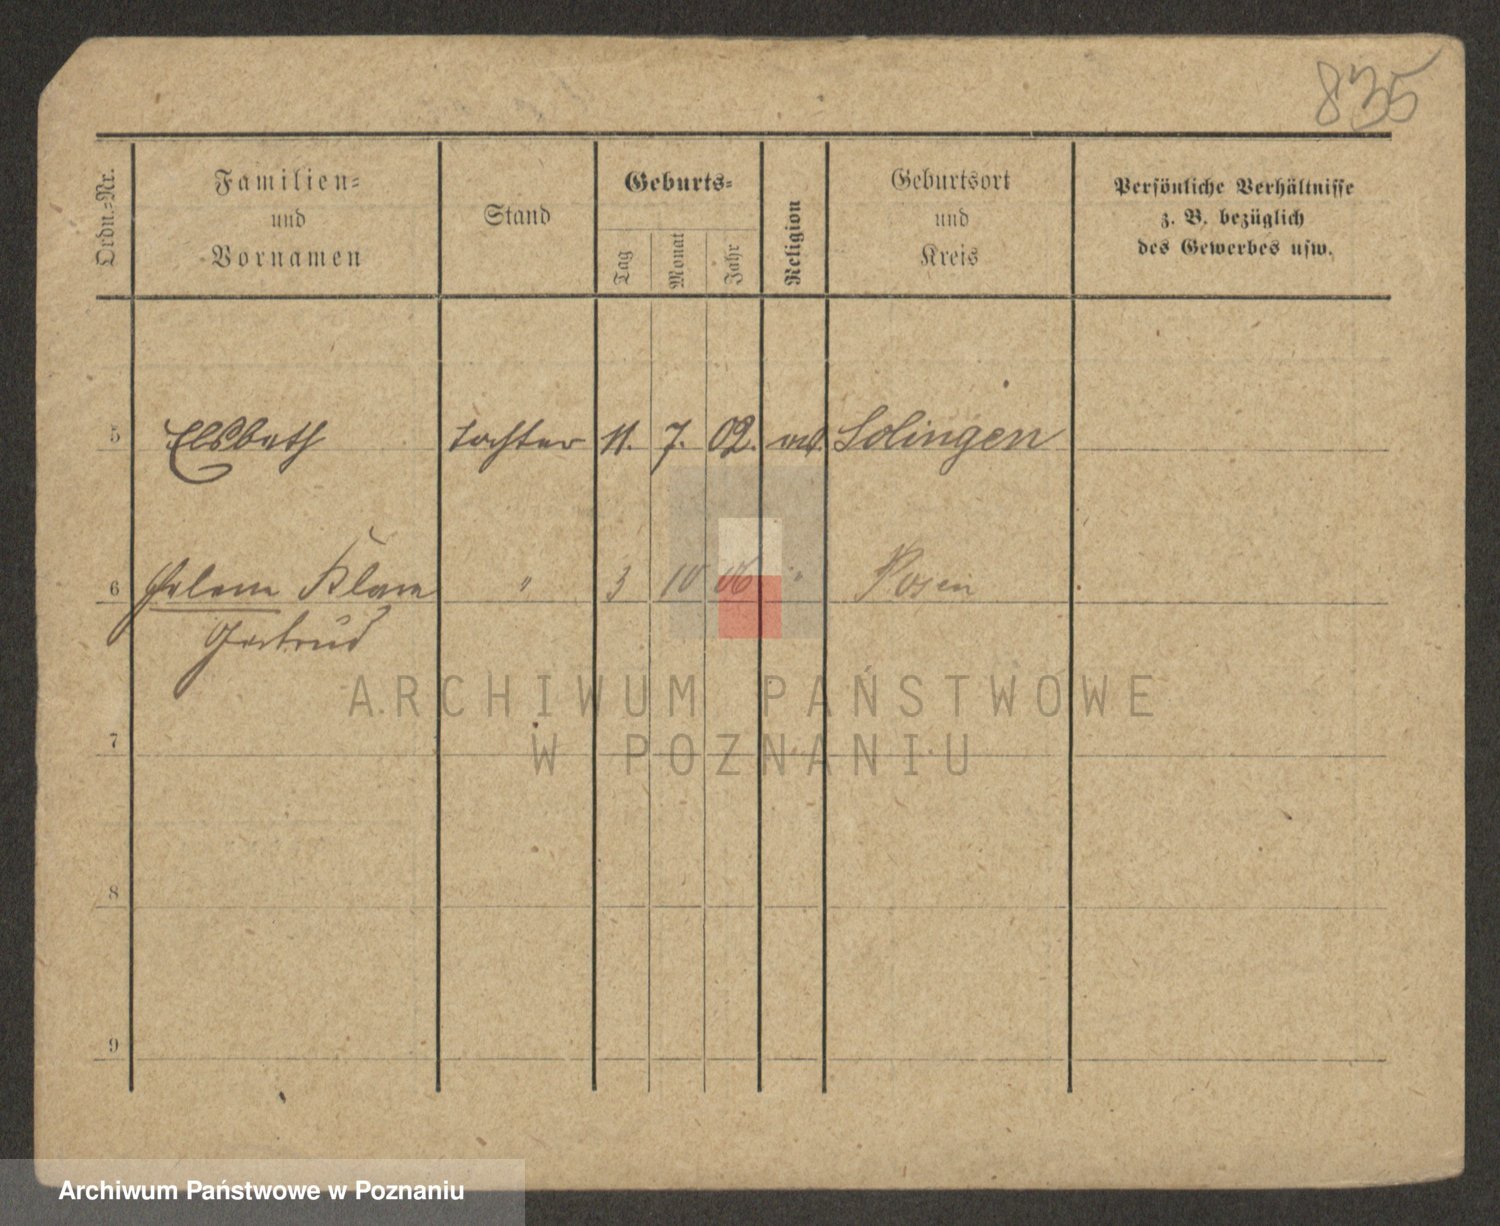 835
Ordn.-Nr.
Familien-
und
Vornamen
Stand
Geburts-
Tag
Monat
Jahr
Religion
Geburtsort
und
Kreis
Persönliche Verhältnisse
z. B. bezüglich
des Gewerbes usw.
5 Elsbeth Tochter 11. 7. 02. Solingen
6 Helene Klara " 3 10 06 " Posen
Gertrud
7
8
9
ARCHIWUM PAŃSTWOWE
W POZNANIU
Archiwum Państwowe w Poznaniu